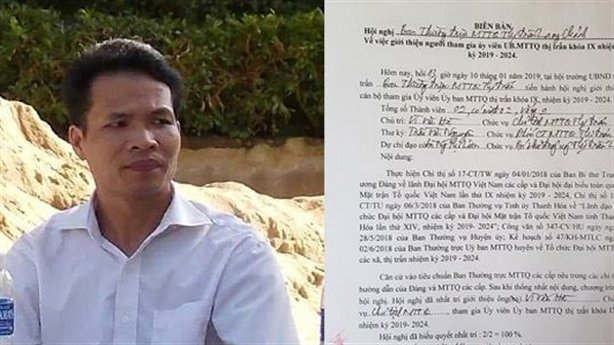 BIÊN BẢN
Hội nghị Ban Thường trực MTTQ Thị trấn Lang Chánh
Về việc giới thiệu người tham gia ủy viên UB.MTTQ thị trấn khóa IX nhiệm
kỳ 2019 - 2024.
Hôm nay, hồi giờ ngày 10 tháng 01 năm 2019, tại hội trường UBND
trấn Ban Thường trực MTTQ Thị trấn tiến hành hội nghị giới
cán bộ tham gia Ủy viên Ủy ban MTTQ thị trấn khóa IX, nhiệm kỳ 2019 - 2024.
Tổng số Thành viên 02, có mặt 02, vắng 0
Chủ trì: Vi Chức vụ Chủ tịch MTTQ Thị trấn
Thư ký: Chức vụ: MTTQ Thị trấn
Dự chỉ đạo Chức vụ:
Nội dung:
Thực hiện Chỉ thị số 17-CT/TW ngày 04/01/2018 của Ban Bí thư Tru
ương Đảng về lãnh đạo Đại hội MTTQ Việt Nam các cấp và Đại hội đại biểu toàn qu
Mặt trận Tổ quốc Việt Nam lần thứ IX nhiệm kỳ 2019 - 2024, Chỉ thị số 1
CT/TU ngày 06/3/2018 của Ban Thường vụ Tỉnh ủy Thanh Hóa về "Lãnh đạo
chức Đại hội MTTQ các cấp và Đại hội Mặt trận Tổ quốc Việt Nam tỉnh Than
Hóa lần thứ XIV, nhiệm kỳ 2019- 2024"; Công văn số 347-CV/HU ngày
28/5/2018 của Ban Thường vụ Huyện ủy; Kế hoạch số 47/KH-MTLC ng
02/6/2018 của Ban Thường trực Uỷ ban MTTQ huyện về Tổ chức Đại hội MT
các xã, thị trấn nhiệm kỳ 2019 - 2024.
Căn cứ vào tiêu chuẩn Ban Thường trực MTTQ các cấp nêu trong các chỉ
hướng dẫn của Đảng và MTTQ các cấp. Sau khi thống nhất nội dung, chương trìn
hội nghị. Hội nghị đã nhất trí giới thiệu ông(bà) Vi
vụ, Chủ tịch MTTQ tham gia Ủy viên Ủy ban MTTQ thị trấn khóa IX
nhiệm kỳ 2019 - 2024.
Hội nghị đã biểu quyết nhất trí : 2/2 = 100 %.